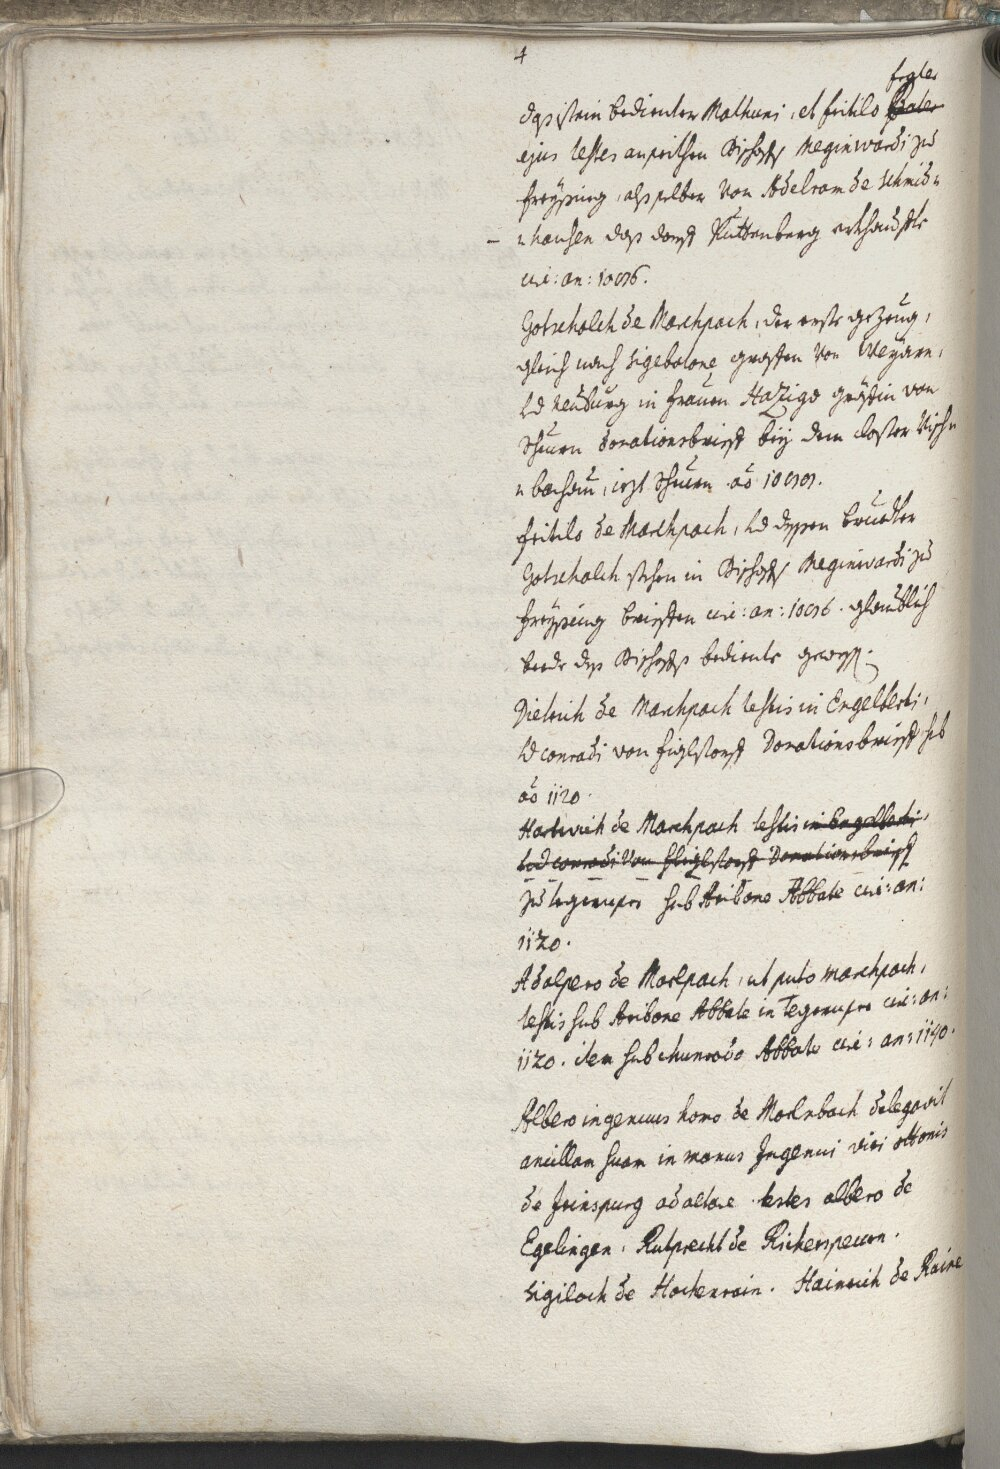 4
frater
ejus testes anreithen Bischoff Meginwardi zu
Freÿsing, alß selber von Adelram de Schmid=
=hausen daß dorff Kuttenberg erkhauffte
circ: an: 1086.
Gotschalch de Marchpach, der erste gezeug,
gleich nach Sigebotone graffen von Weÿarn,
et Neuburg in frauen Haziga gräffin von
Scheurn donationsbrieff beÿ dem closter Visch=
=bachau, iezt Scheurn aō 1080.
Fritilo de Marchpach, et dessen bruedter
Gotschalch stehen in Bischoff Meginwardi zu
Freÿsing brieffen circ: an: 1086. glaublich
beede deß Bischoffs bediente gewest.
Dietrich de Marchpach testis in Engelberti,
et conradi von Donationsbrieff sub
aō 1120.
Hartwich de Marchpach testis in Engelberti,
et conradi von Donationsbrieff
zu tegernsee sub Aribone Abbate circ: an:
1120.
Adalpero de Marpach, ut puto marchpach,
testis sub Aribone Abbate in Tegernsee circ: an:
1120. item sub chunrado Abbate circ: an: 1140.
Albero ingenuus homo de Marhbach delegavit
ancillam suam in manus Ingenui viri ottonis
de Irinspurg ad altare testes albero de
Egelingen. Rutprecht de Rickerspeuern.
Sigiloch de Hachenrain. Hainrich de Raine